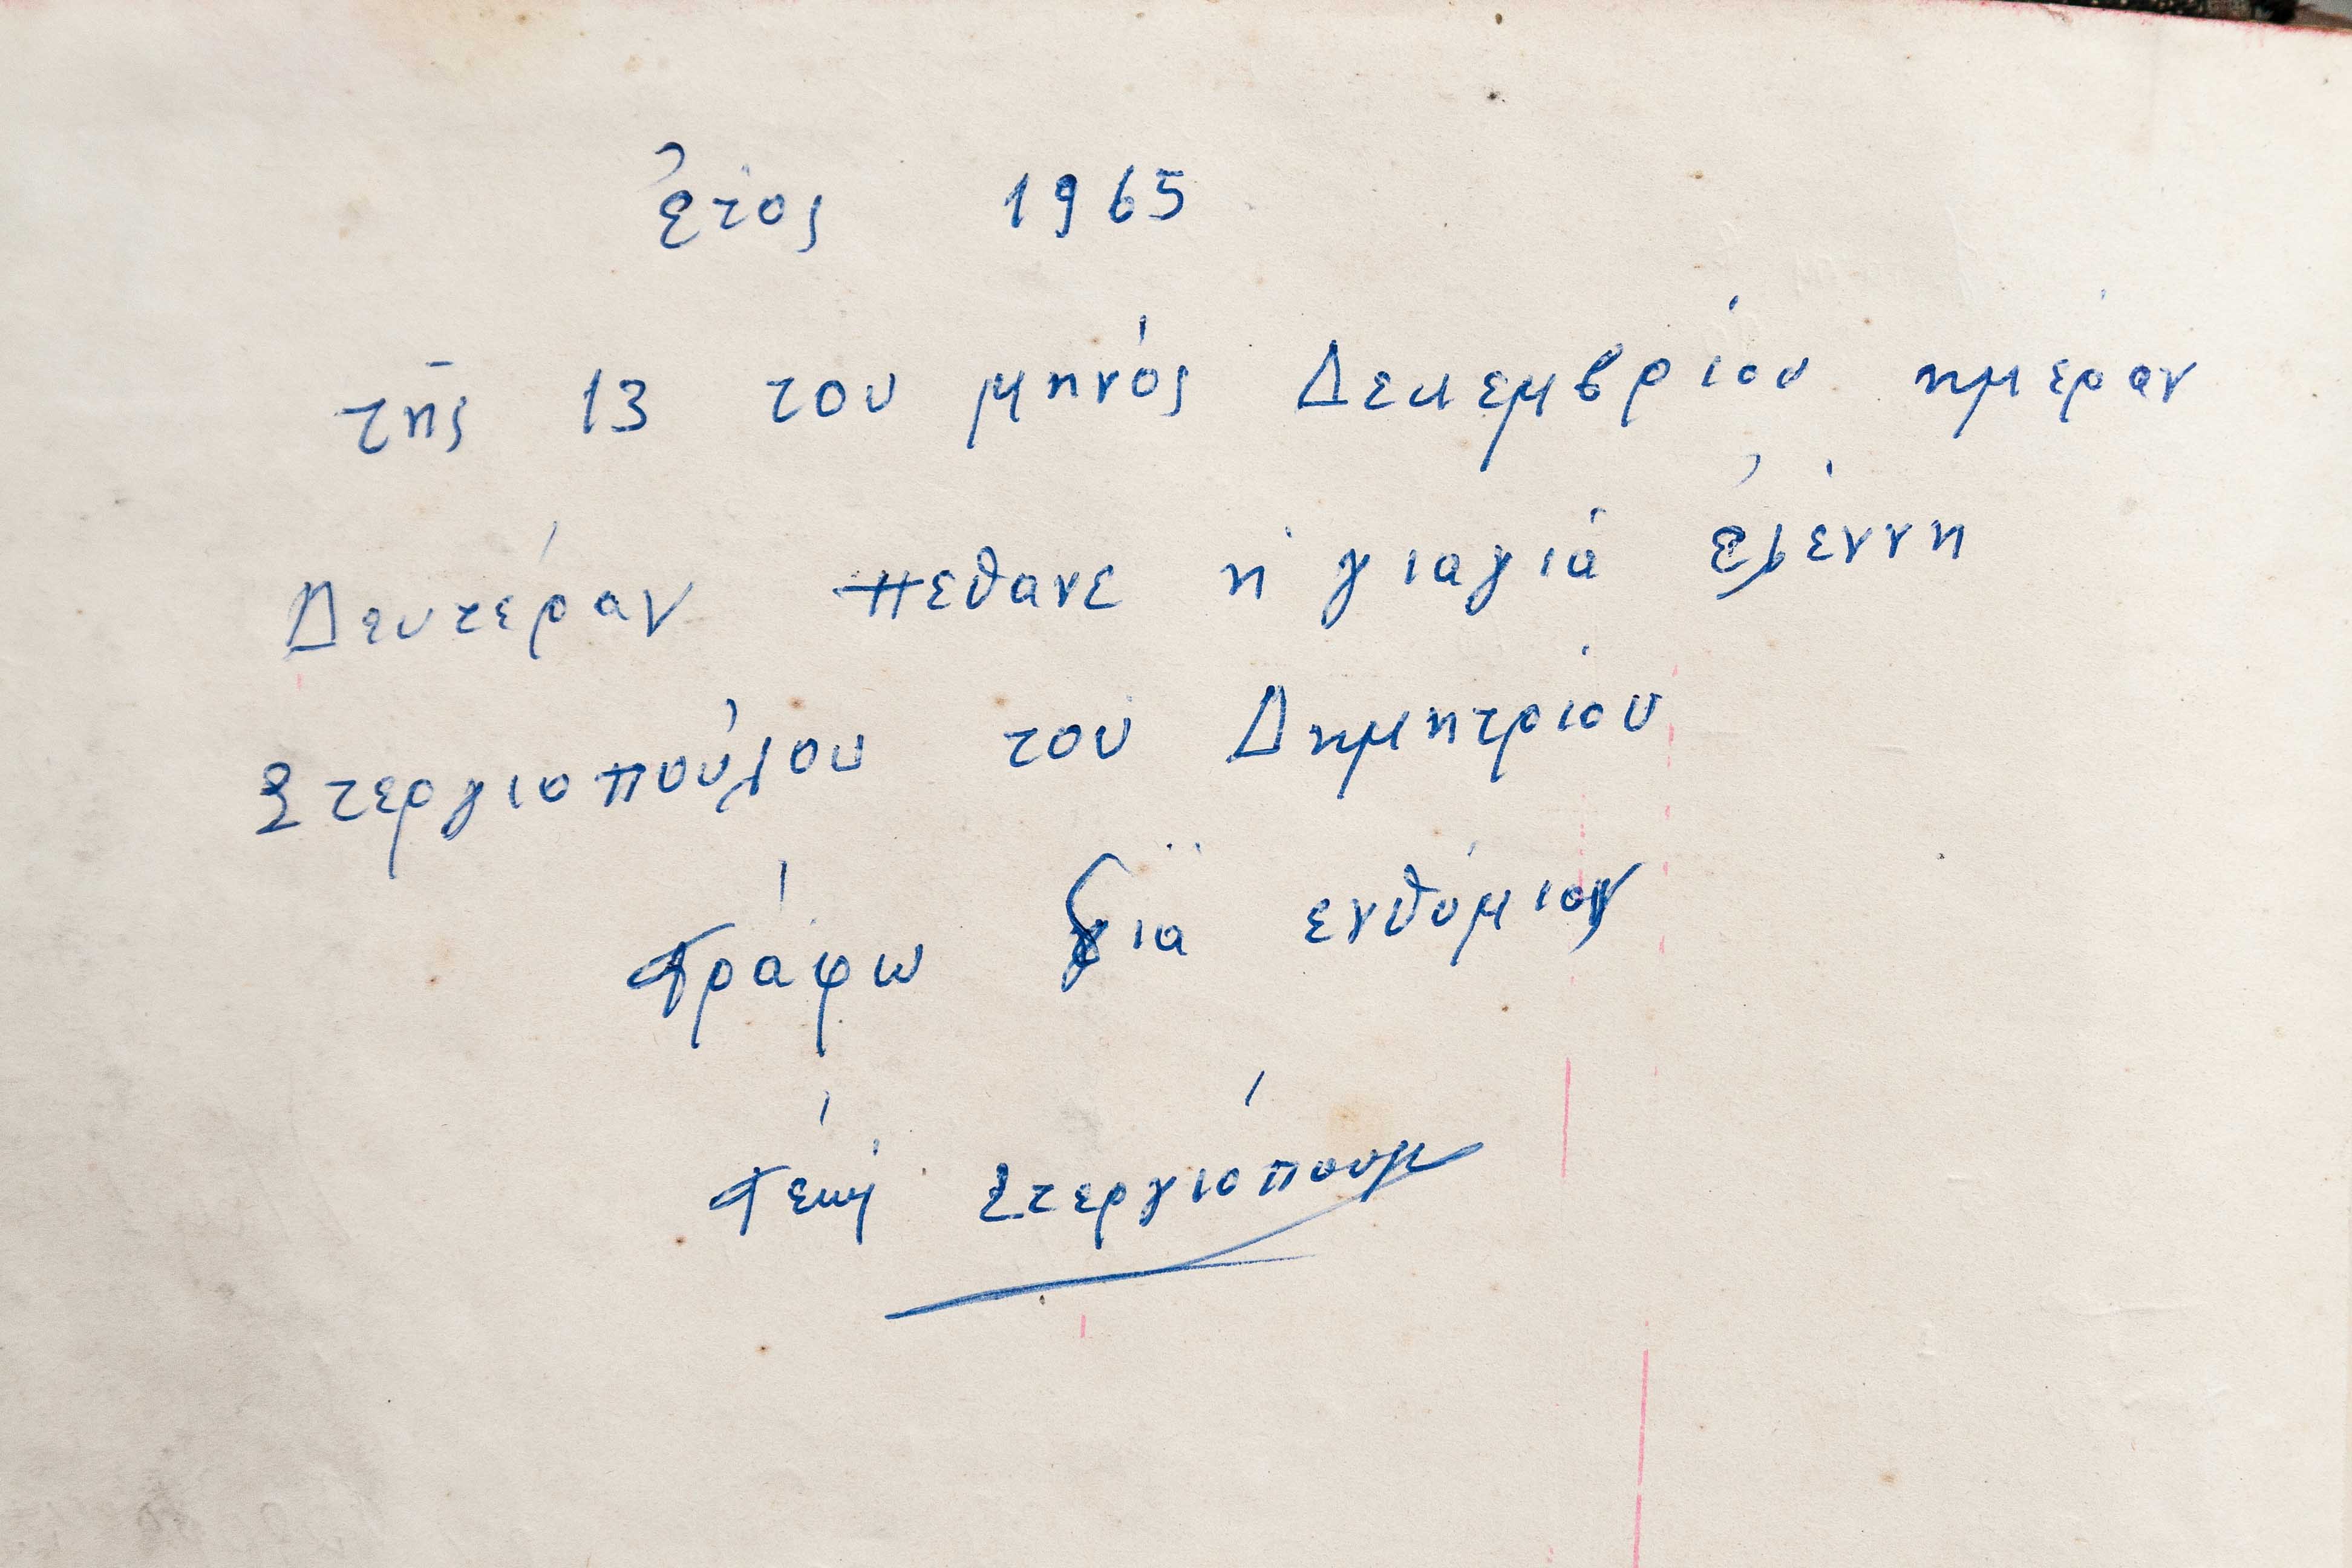 ἔτος 1965
τῆς 13 του μηνός Δεκεμβρίου ημέραν
Δευτέραν πεθανε η γιαγιά ἐλέννη
Στεργιοπούλου του Δημητρίου
Γράφω για ενθύμιον
Στεργιόπουλ